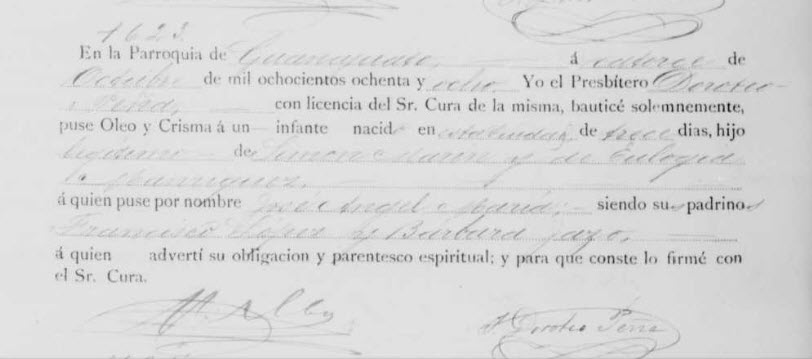 1623.
En la Parroquia de Guanajuato, á catorce de
Octubre de mil ochocientos ochenta y ocho. Yo el Presbítero Doroteo
Peña, con licencia del Sr. Cura de la misma, bauticé solemnemente,
puse Oleo y Crisma á un infante nacido en esta ciudad, de trece dias, hijo
legitimo de Simon Marin y de Eulogia
Manriquez.
á quien puse por nombre José Angel Maria; siendo sus padrinos
Francisco Lopez y Bárbara Jazo.
á quien advertí su obligacion y parentesco espiritual; y para que conste lo firmé con
el Sr. Cura.
Doroteo Peña